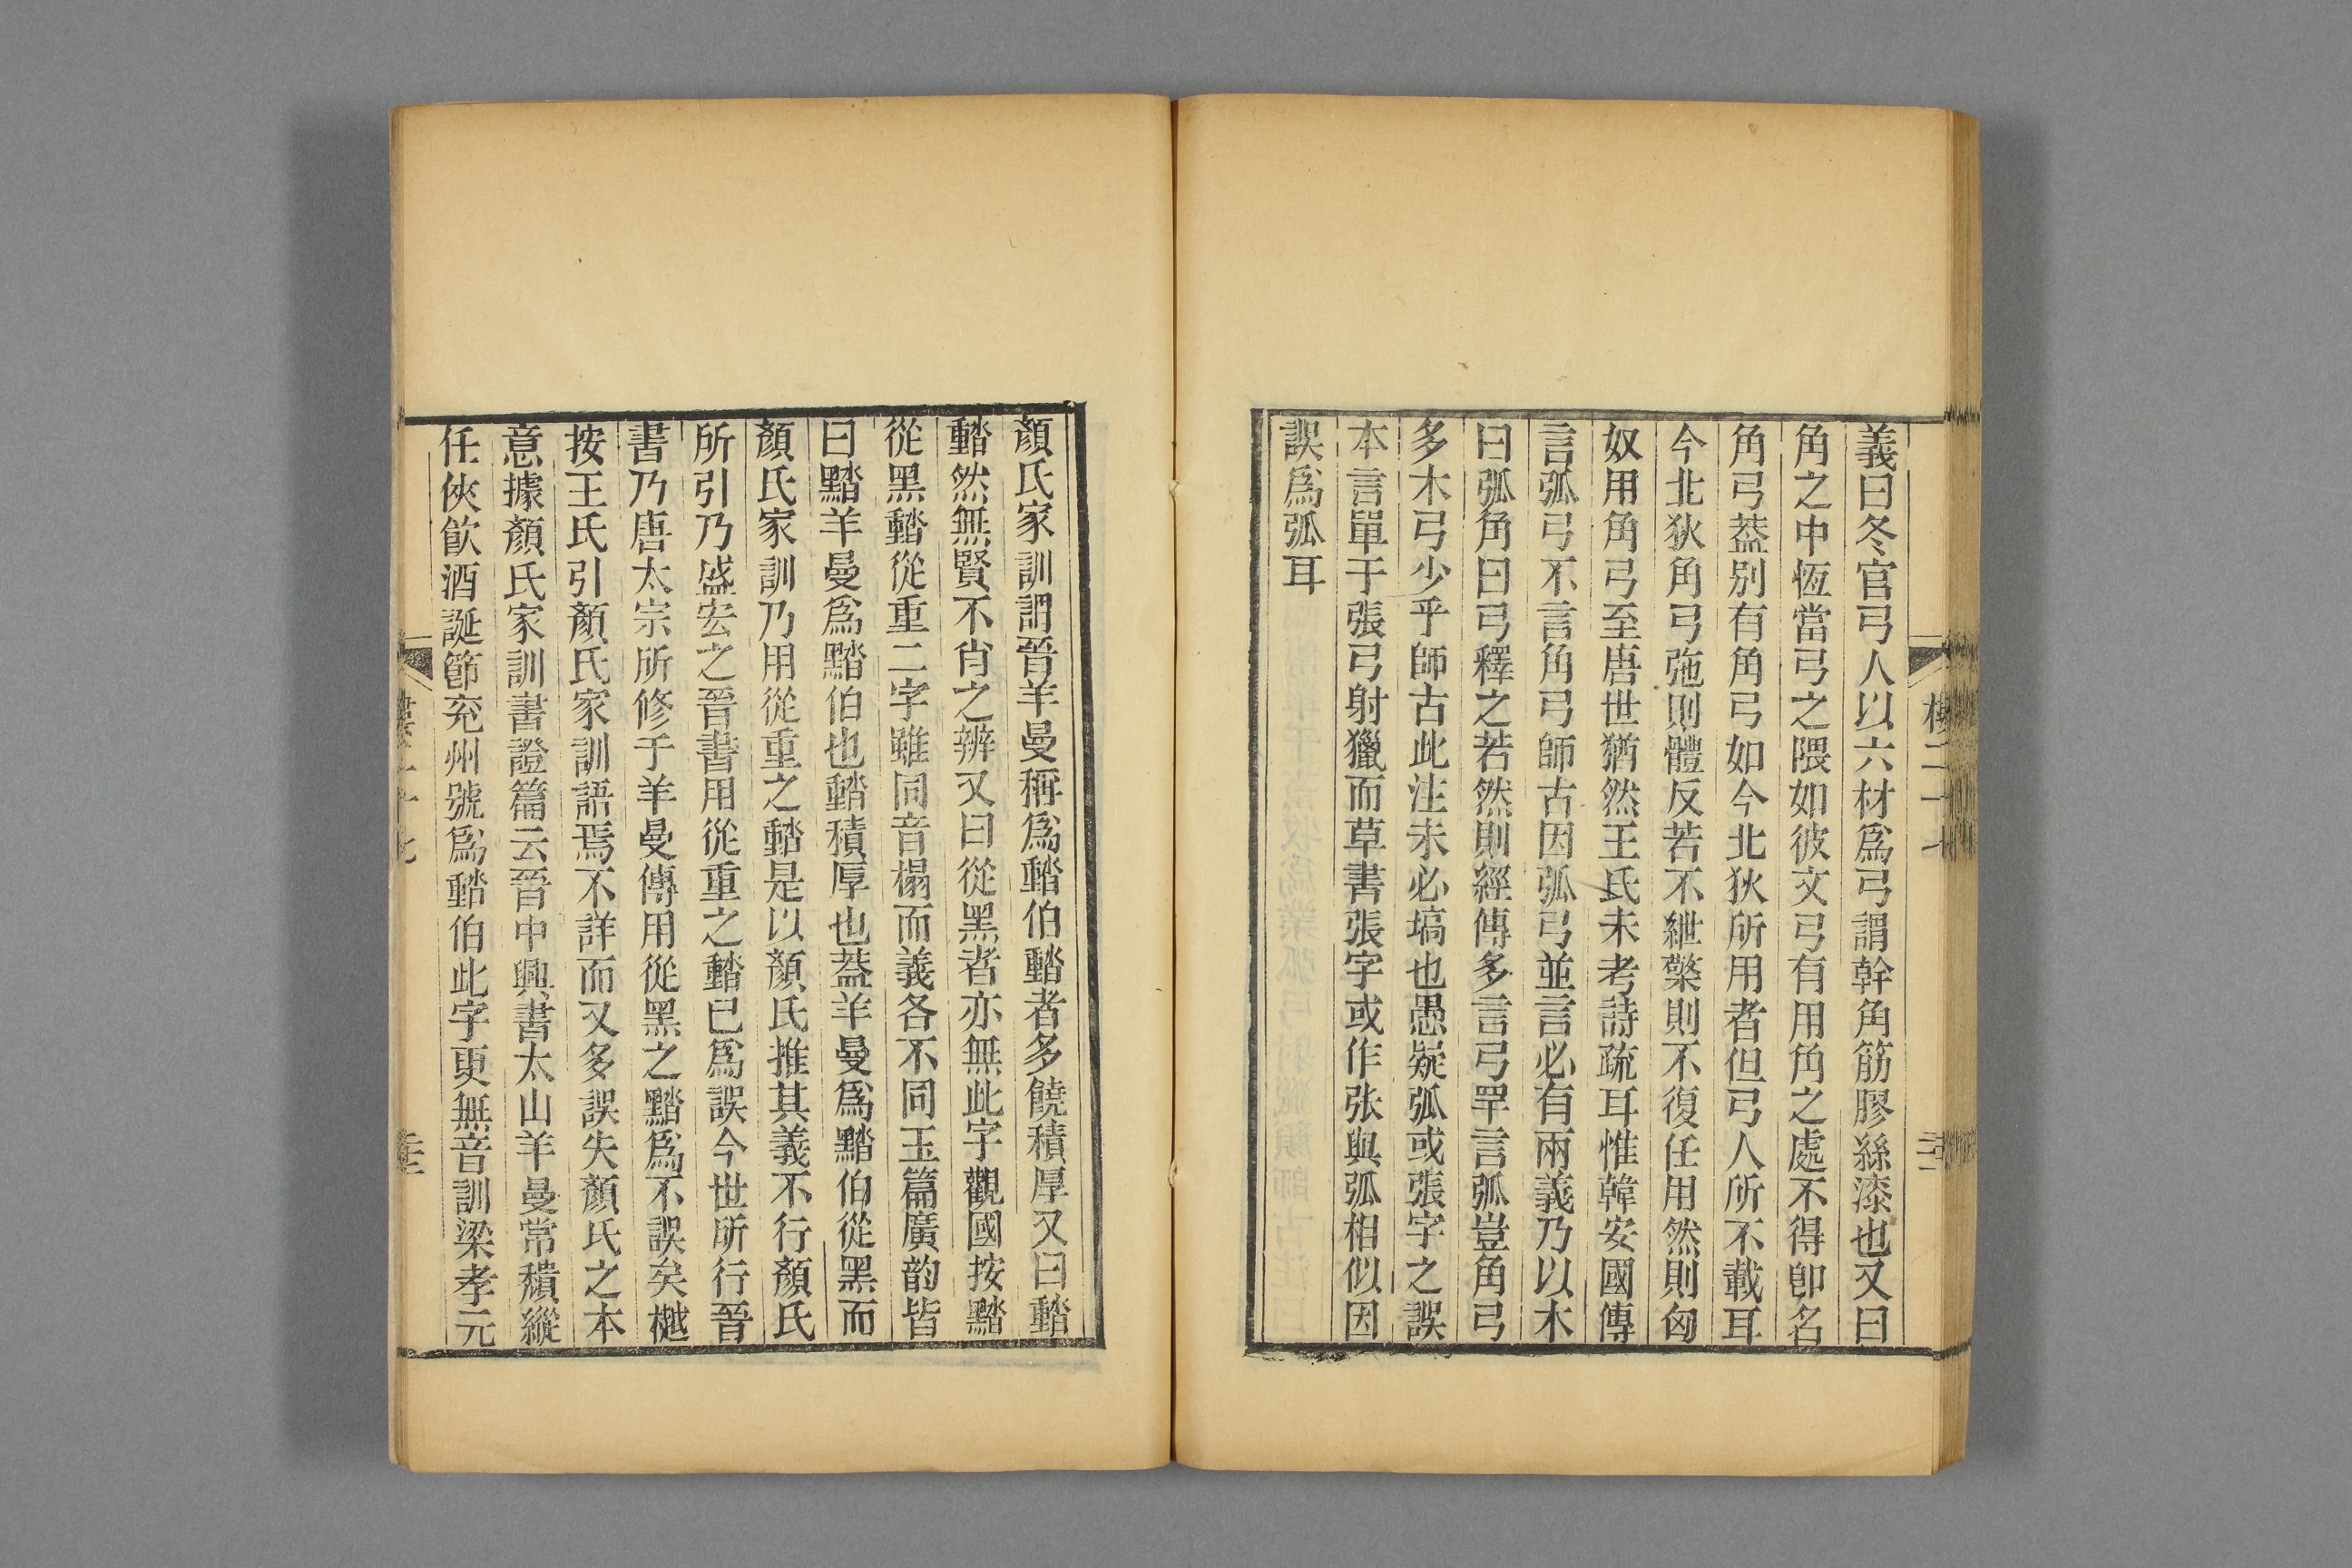 義曰冬官弓人以六材爲弓謂幹角筋膠絲漆也又曰
角之中恆當弓之隈如彼文弓有用角之處不得卽名
角弓葢別有角弓如今北狄所用者但弓人所不載耳
今北狄角弓弛則體反若不紲檠則不復任用然則匈
奴用角弓至唐世猶然王氏未考詩疏耳惟韓安國傳
言弧弓不言角弓師古因弧弓並言必有兩義乃以木
曰弧角曰弓釋之若然則經傳多言弓罕言弧豈角弓
多木弓少乎師古此注未必塙也愚疑弧或張字之誤
本言單于張弓射獵而草書張字或作张與弧相似因
誤爲弧耳
顏氏家訓謂晉羊曼稱爲䵬伯䵬者多饒積厚又曰䵬
䵬然無賢不肖之辨又曰從黑者亦無此字觀國按黯
從黑䵬從重二字雖同音榻而義各不同玉篇廣韵皆
曰䵬羊曼爲䵬伯也䵬積厚也葢羊曼爲䵬伯從黑而
顏氏家訓乃用從重之䵬是以顏氏推其義不行顏氏
所引乃盛宏之晉書用從重之䵬已爲誤今世所行晉
書乃唐太宗所修于羊曼傳用從黑之䵬爲不誤矣樾
按王氏引顏氏家訓語焉不詳而又多誤失顏氏之本
意據顏氏家訓書證篇云晉中興書太山羊曼常穨縱
任俠飮酒誕節兖州號爲䵬伯此字更無音訓梁孝元